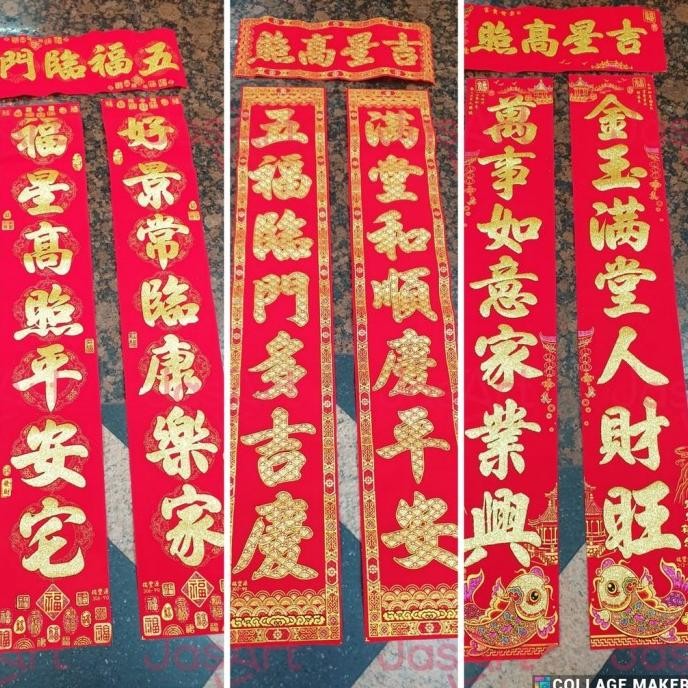 五福臨門
好景常臨康樂家
福星高照平安宅
吉星高照
滿堂和順慶平安
五福臨門多吉慶
吉星高照
金玉滿堂人財旺
萬事如意家業興
福
福
COLLAGE MAKER